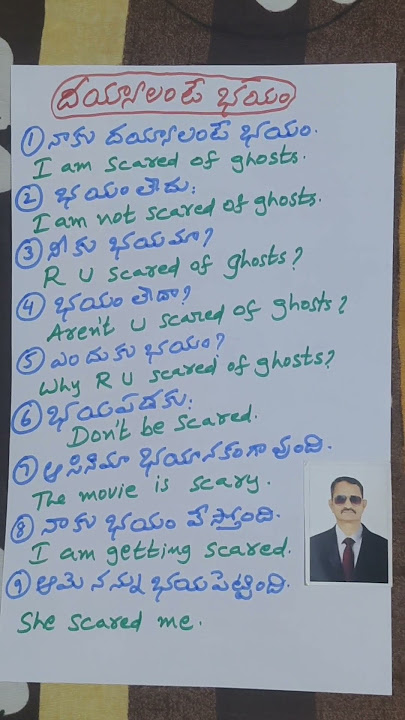 దయ్యాలంటే భయం
① నాకు దయ్యాలంటే భయం.
I am scared of ghosts.
② భయం లేదు:
I am not scared of ghosts.
③ నీకు భయమా?
R U scared of ghosts?
④ భయం లేదా?
Aren't U scared of ghosts?
⑤ ఎందుకు భయం?
Why R U scared of ghosts?
⑥ భయపడకు:
Don't be scared.
⑦ ఆ సినిమా భయానకంగా వుంది.
The movie is scary.
⑧ నాకు భయం వేస్తోంది.
I am getting scared.
⑨ ఆమె నన్ను భయపెట్టింది.
She scared me.